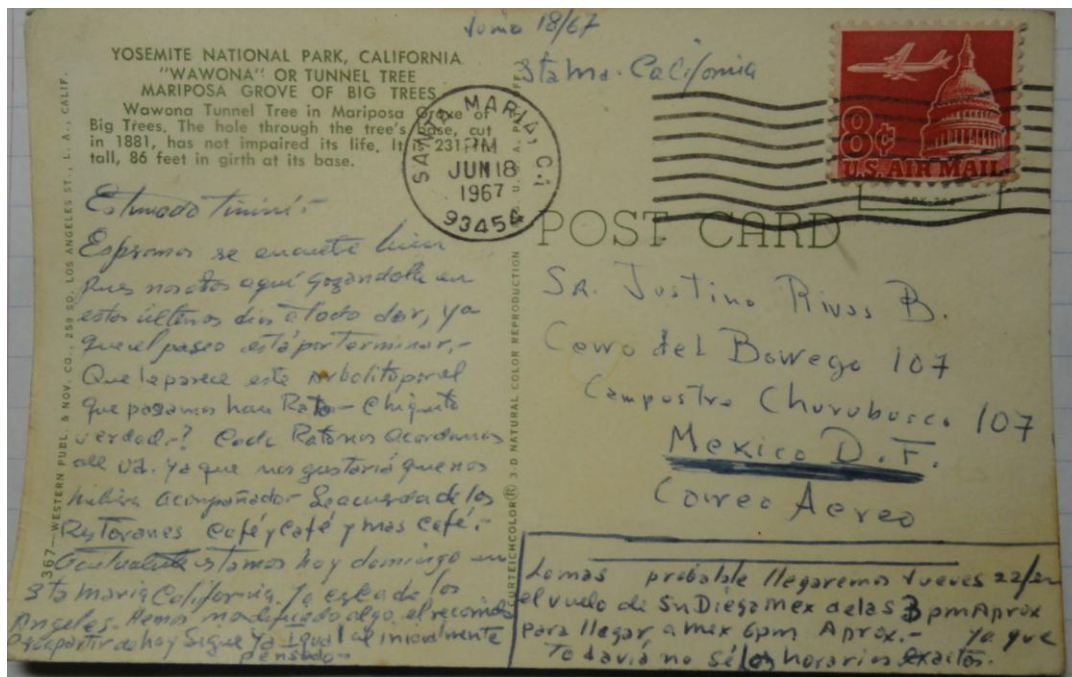 Junio 18/67
Sta Ma. California
YOSEMITE NATIONAL PARK, CALIFORNIA
"WAWONA" OR TUNNEL TREE
MARIPOSA GROVE OF BIG TREES
Wawona Tunnel Tree in Mariposa Grove of
Big Trees. The hole through the tree's base, cut
in 1881, has not impaired its life. It is 231 ft.
tall, 86 feet in girth at its base.
SANTA MARIA, CA
PM
JUN 18
1967
93454
8¢
U.S. AIR MAIL
POST CARD
367—WESTERN PUBL. & NOV. CO., 259 SO. LOS ANGELES ST., L.A., CALIF.
CURTEICHCOLOR® 3-D NATURAL COLOR REPRODUCTION
Estimado
Espramos se encuete bien
Pues nosotros aquí gozandole en
estos últimos dias a todo dar, ya
que el paseo está por terminar.-
Que le parece este Arbolito por el
que pasamos hace Rato- Chiquito
verdad.-? Cada Rato nos acordamos
de Ud. ya que nos gustaría que nos
hubiera acompañado- Se acuerda de los
Restoranes café y café y mas café.-
estamos hoy domingo en
Sta Maria California. Ya cerca de los
Angeles. Hemos modificado algo el recorrido
a partir de hoy sigue ya igual al inicialmente
pensado-
Sr. Justino Rivas B.
Cerro del Borrego 107
Campestre Churubusco 107
Mexico D.F.
Correo Aereo
Lomas probable llegaremos Jueves 22/en
el vuelo de Sn Diego Mex de las 3 pm Aprox
para llegar a Mex 6pm Aprox.- Ya que
Todaviá no sé los horarios exactos.